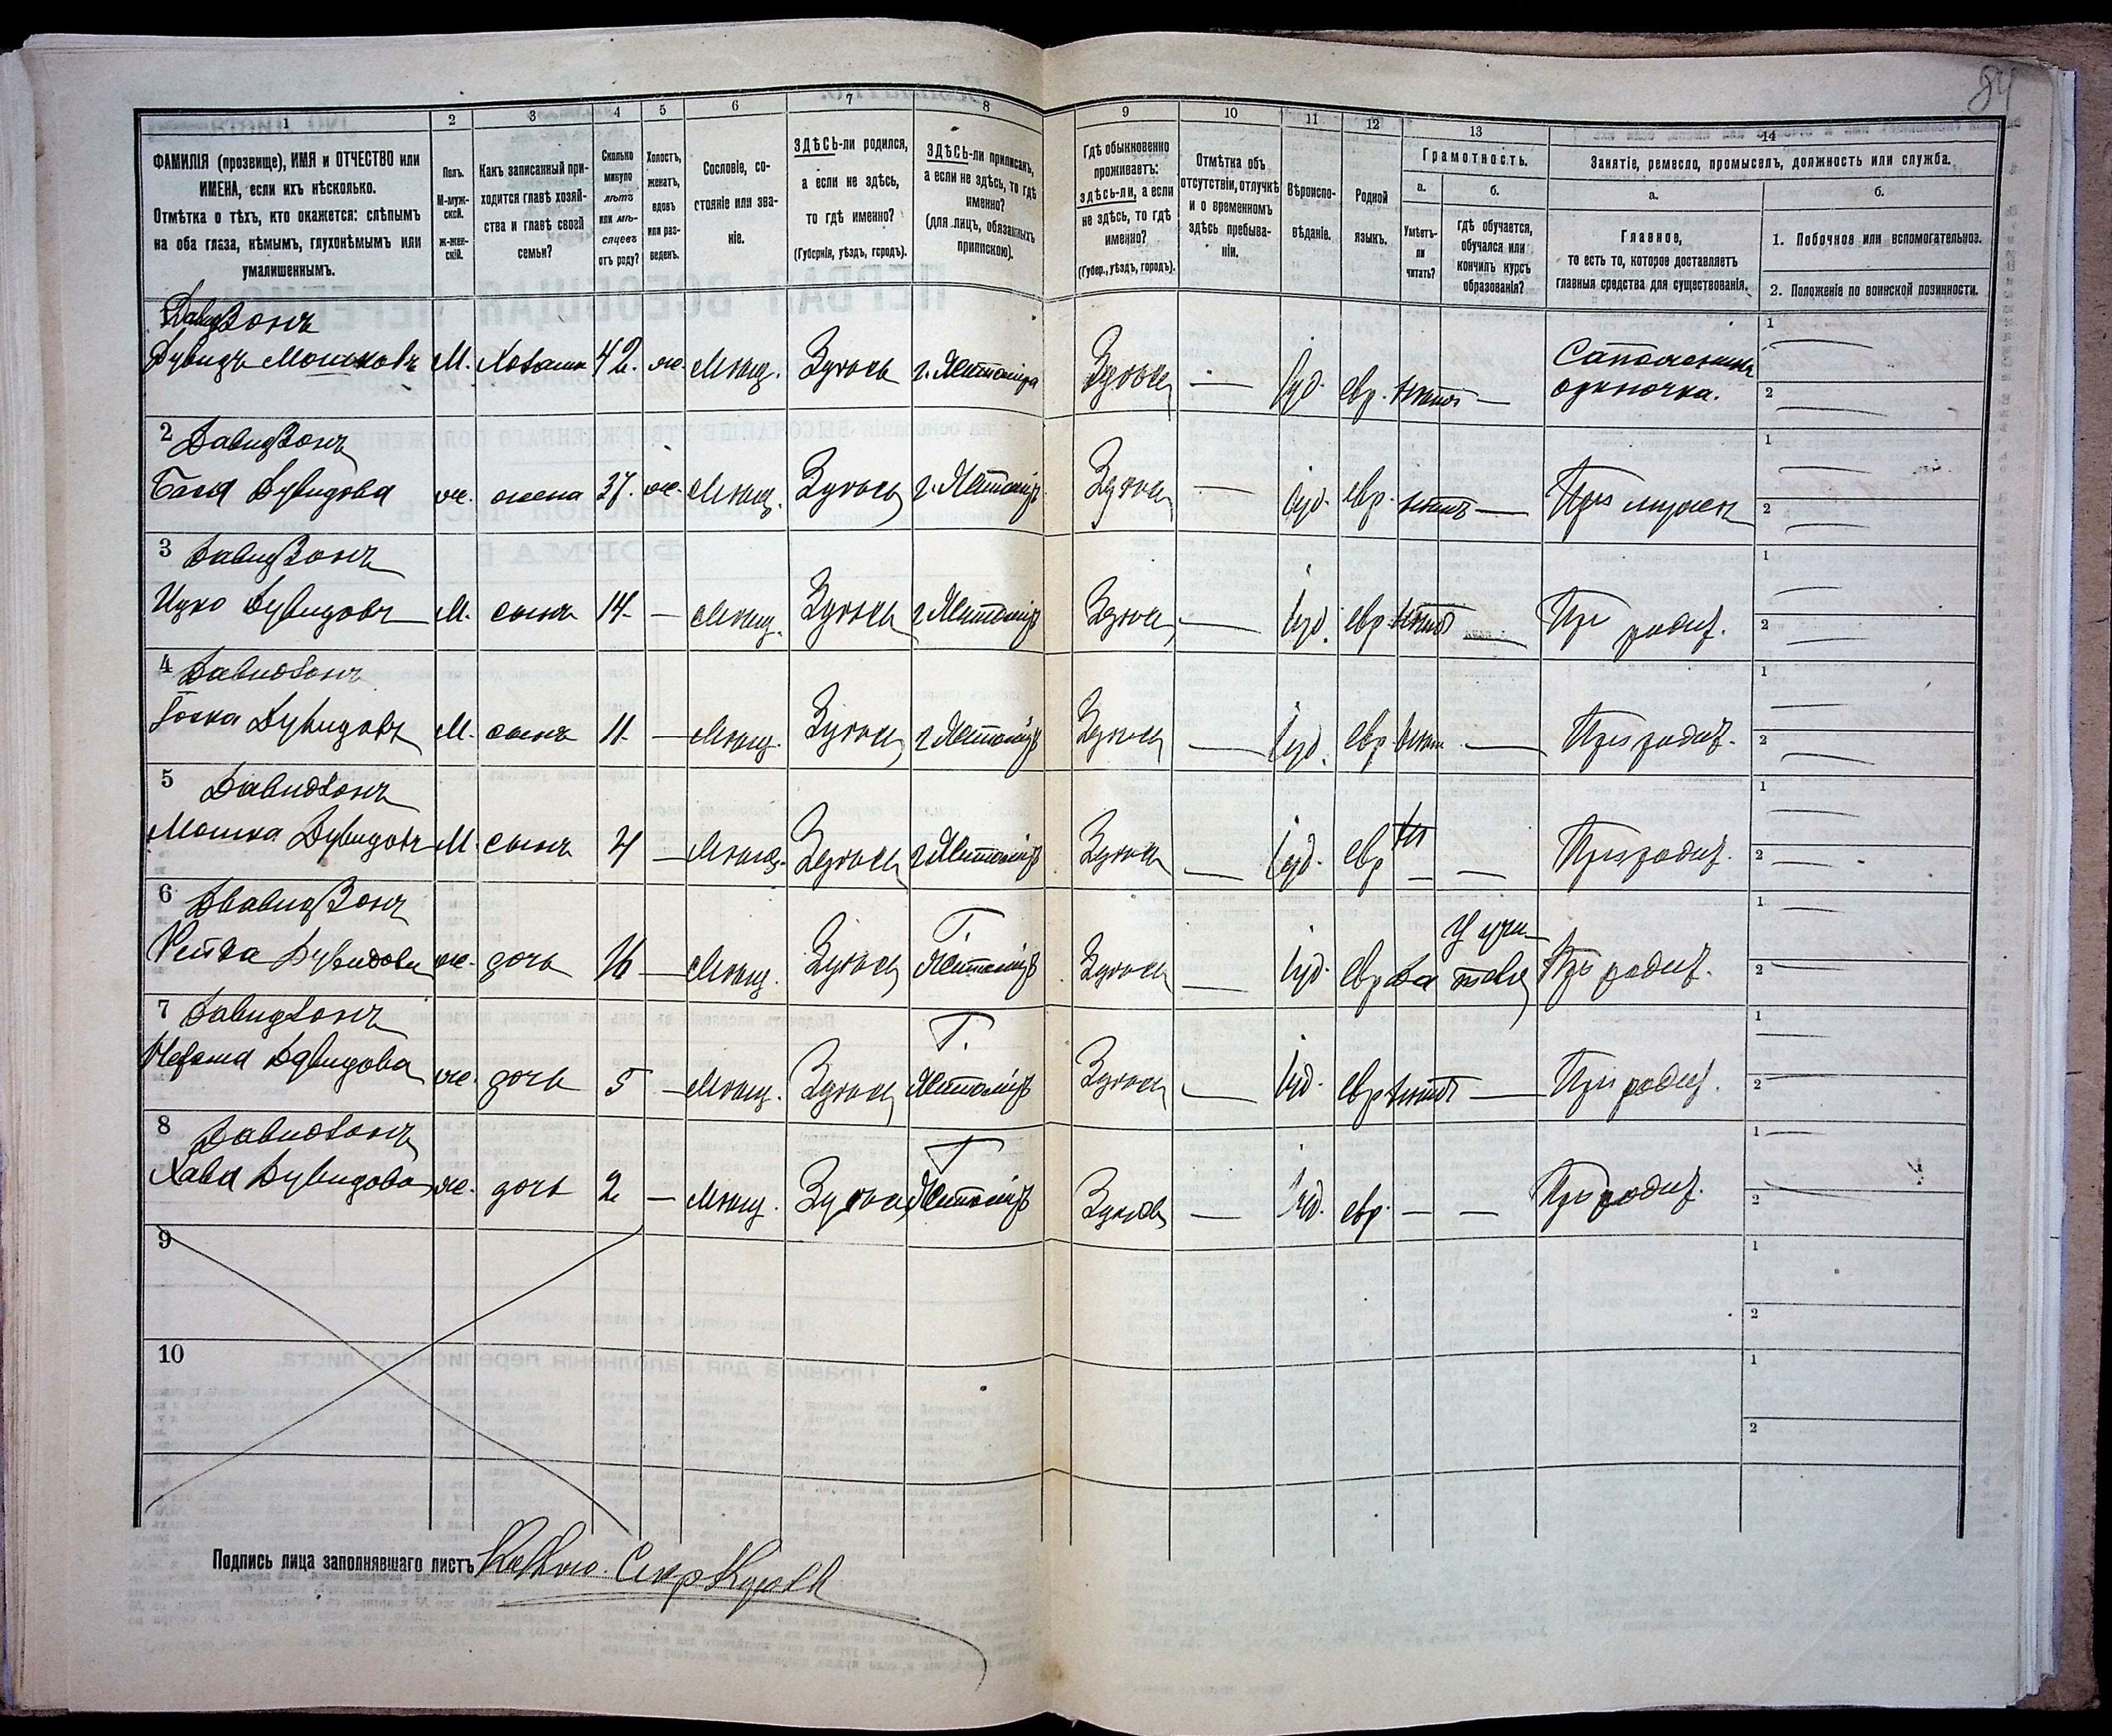 84
1 2 3 4 5 6 7 8 9 10 11 12 13 14
ФАМИЛІЯ (прозвище), ИМЯ и ОТЧЕСТВО или
ИМЕНА, если ихъ нѣсколько.
Отмѣтка о тѣхъ, кто окажется: слѣпымъ
на оба глаза, нѣмымъ, глухонѣмымъ или
умалишеннымъ.
Полъ.
М-муж-
ской.
Ж-жен-
скій.
Какъ записанный при-
ходится главѣ хозяй-
ства и главѣ своей
семьи?
Сколько
минуло
лѣтъ
или мѣ-
сяцевъ
отъ роду?
Холостъ,
женатъ,
вдовъ
или раз-
веденъ.
Сословіе, со-
стояніе или зва-
ніе.
ЗДѢСЬ-ли родился,
а если не здѣсь,
то гдѣ именно?
(Губернія, уѣздъ, городъ).
ЗДѢСЬ-ли приписанъ,
а если не здѣсь, то гдѣ
именно?
(для лицъ, обязанныхъ
припискою).
Гдѣ обыкновенно
проживаетъ:
здѣсь-ли, а если
не здѣсь, то гдѣ
именно?
(Губер., уѣздъ, городъ).
Отмѣтка объ
отсутствіи, отлучкѣ
и о временномъ
здѣсь пребыва-
ніи.
Вѣроиспо-
вѣданіе.
Родной
языкъ.
Грамотность.
а.
Умѣетъ-
ли
читать?
б.
гдѣ обучается,
обучался или
кончилъ курсъ
образованія?
Занятіе, ремесло, промыселъ, должность или служба.
а.
Главное,
то есть то, которое доставляетъ
главныя средства для существованія.
б.
1. Побочное или вспомогательное.
2. Положеніе по воинской повинности.
Давидзонъ
Дувидъ Мошковъ М. Хозяинъ 42. ж. Мѣщ. Здѣсь г. Житоміра Здѣсь — Іуд. евр. нѣтъ — Сапожникъ
одиночка.
1
2
2 Давидзонъ
Бася Дувидова ж. жена 37. ж. Мѣщ. Здѣсь г. Житоміръ Здѣсь — Іуд. евр. нѣтъ — При мужѣ
1
2
3 Давидзонъ
Ицко Дувидовъ М. сынъ 14. — Мѣщ. Здѣсь г. Житоміръ Здѣсь — Іуд. евр. нѣтъ — При родит.
1
2
4 Давидзонъ
Дувидовъ М. сынъ 11. — Мѣщ. Здѣсь г. Житоміръ Здѣсь — Іуд. евр. нѣт. — При родит.
1
2
5 Давидзонъ
Мошка Дувидовъ М. сынъ 4 — Мѣщ. Здѣсь г. Житоміръ Здѣсь — Іуд. евр — — При родит.
1
2
6 Давидзонъ
Рейза Дувидова ж. дочь 16 — Мѣщ. Здѣсь Г. Житоміръ Здѣсь — Іуд. евр да У учи-
теля При родит.
1
2
7 Давидзонъ
Дувидова ж. дочь 5 — Мѣщ. Здѣсь Г. Житоміръ Здѣсь — Іуд. евр нѣтъ — При родит.
1
2
8 Давидзонъ
Хава Дувидова ж. дочь 2 — Мѣщ. Здѣсь Г. Житоміръ Здѣсь — Іуд. евр. — — При родит.
1
2
9
1
2
10
1
2
Подпись лица заполнявшаго листъ